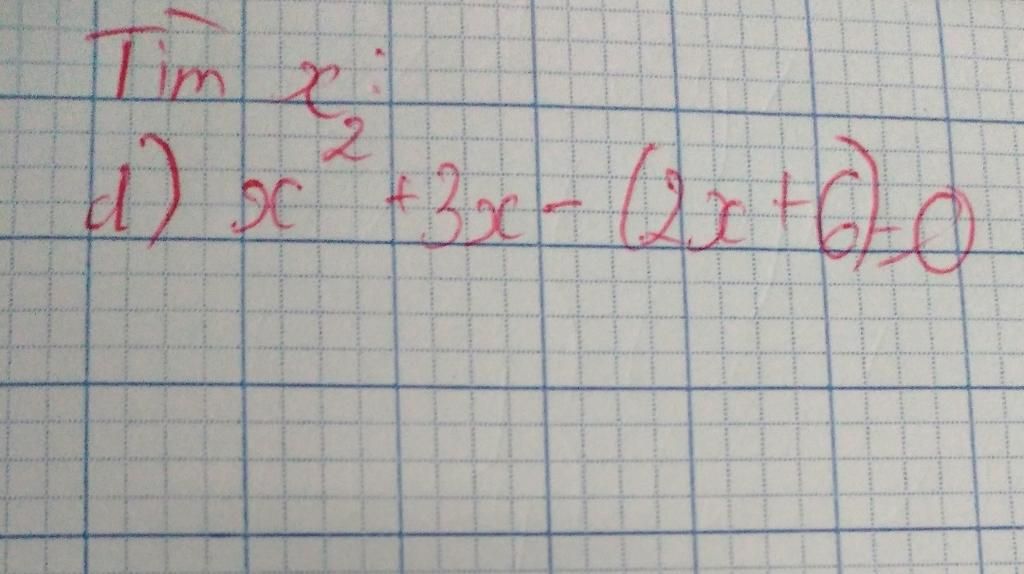 Tìm x:
d) x² + 3x - (2x + 6) = 0